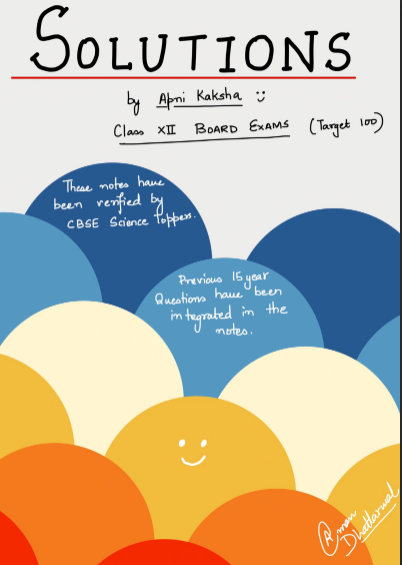 SOLUTIONS
by Apni Kaksha :)
Class XII BOARD EXAMS (Target 100)
These notes have
been verified by
CBSE Science Toppers.
Previous 15 year
Questions have been
integrated in the
notes.
Aman
Dhattarwal